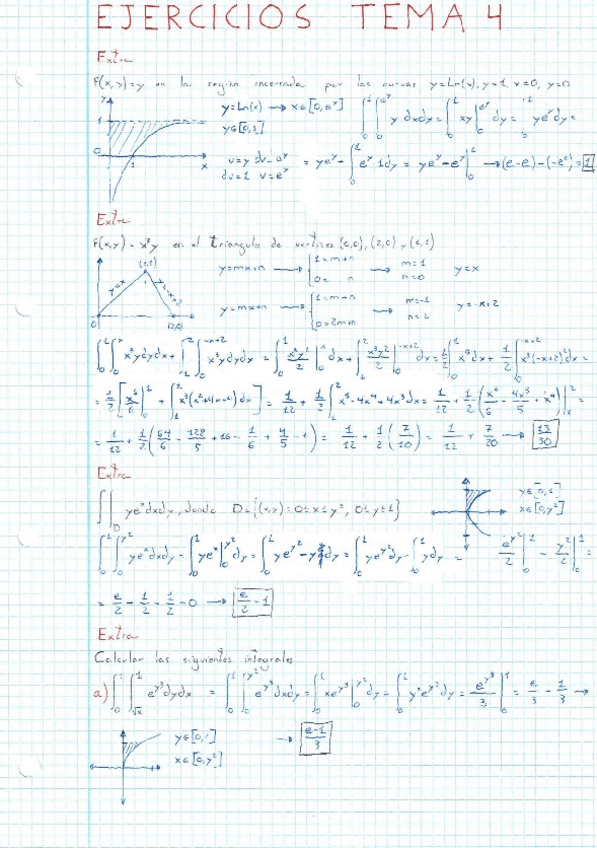 EJERCICIOS TEMA 4
Extra
f(x,y)=y en la región encerrada por las curvas y=Ln(x), y=1, x=0, y=0
y=Ln(x) → x∈[0,e^y] ∫_0^1 ∫_0^{e^y} y dxdy = ∫_0^1 xy |_0^{e^y} dy = ∫_0^1 ye^y dy =
y∈[0,1]
u=y dv=e^y
du=1 v=e^y
= ye^y - ∫_0^1 e^y 1dy = ye^y - e^y |_0^1 → (e-e)-(-e^0) = 1
Extra
f(x,y) = x³y en el triangulo de vertices (0,0), (2,0) y (1,1)
y=mx+n → { 1=m+n → m=1 y=x
0= n n=0
y=mx+n → { 1=m+n → m=-1 y=-x+2
0=2m+n n=2
(1,1) y=x y=-x+2 0 (2,0)
∫_0^1 ∫_0^x x³y dydx + ∫_1^2 ∫_0^{-x+2} x³y dydx = ∫_0^1 x³y²/2 |_0^x dx + ∫_1^2 x³y²/2 |_0^{-x+2} dx = 1/2 ∫_0^1 x⁵dx + 1/2 ∫_1^2 x³(-x+2)²dx =
= 1/2 [ x⁶/6 |_0^1 + ∫_1^2 x³(x²+4x+4)dx ] = 1/12 + 1/2 ∫_1^2 x⁵-4x⁴+4x³dx = 1/12 + 1/2 ( x⁶/6 - 4x⁵/5 + x⁴ ) |_1^2 =
= 1/12 + 1/2 ( 64/6 - 128/5 + 16 - 1/6 + 4/5 - 1 ) = 1/12 + 1/2 ( 7/10 ) = 1/12 + 7/20 → 13/30
Extra
∫∫_D ye^x dxdy, donde D={(x,y): 0≤x≤y², 0≤y≤1}
y∈[0,1]
x∈[0,y²]
∫_0^1 ∫_0^{y²} ye^x dxdy = ∫_0^1 ye^x |_0^{y²} dy = ∫_0^1 ye^{y²} - y dy = ∫_0^1 ye^{y²}dy - ∫_0^1 ydy = e^{y²}/2 |_0^1 - y²/2 |_0^1 =
= e/2 - 1/2 - 1/2 - 0 → e/2 - 1
Extra
Calcular las siguientes integrales
a) ∫_0^1 ∫_{√x}^1 e^{y³} dydx = ∫_0^1 ∫_0^{y²} e^{y³} dxdy = ∫_0^1 xe^{y³} |_0^{y²} dy = ∫_0^1 y²e^{y³} dy = e^{y³}/3 |_0^1 = e/3 - 1/3 →
y∈[0,1] → e-1/3
x∈[0,y²]